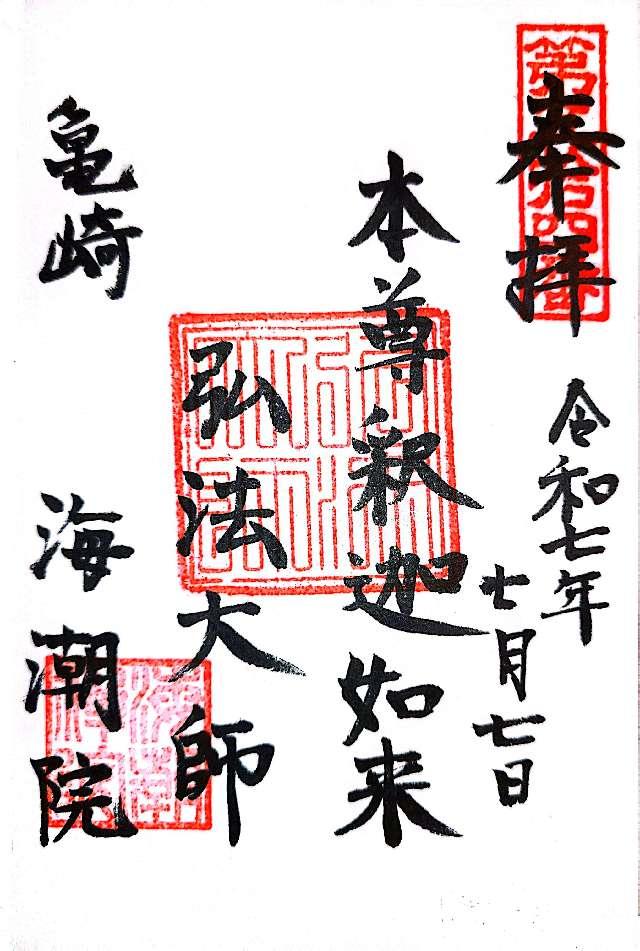 奉拝
令和七年
七月七日
本尊釈迦如来
弘法大師
亀崎
海潮院